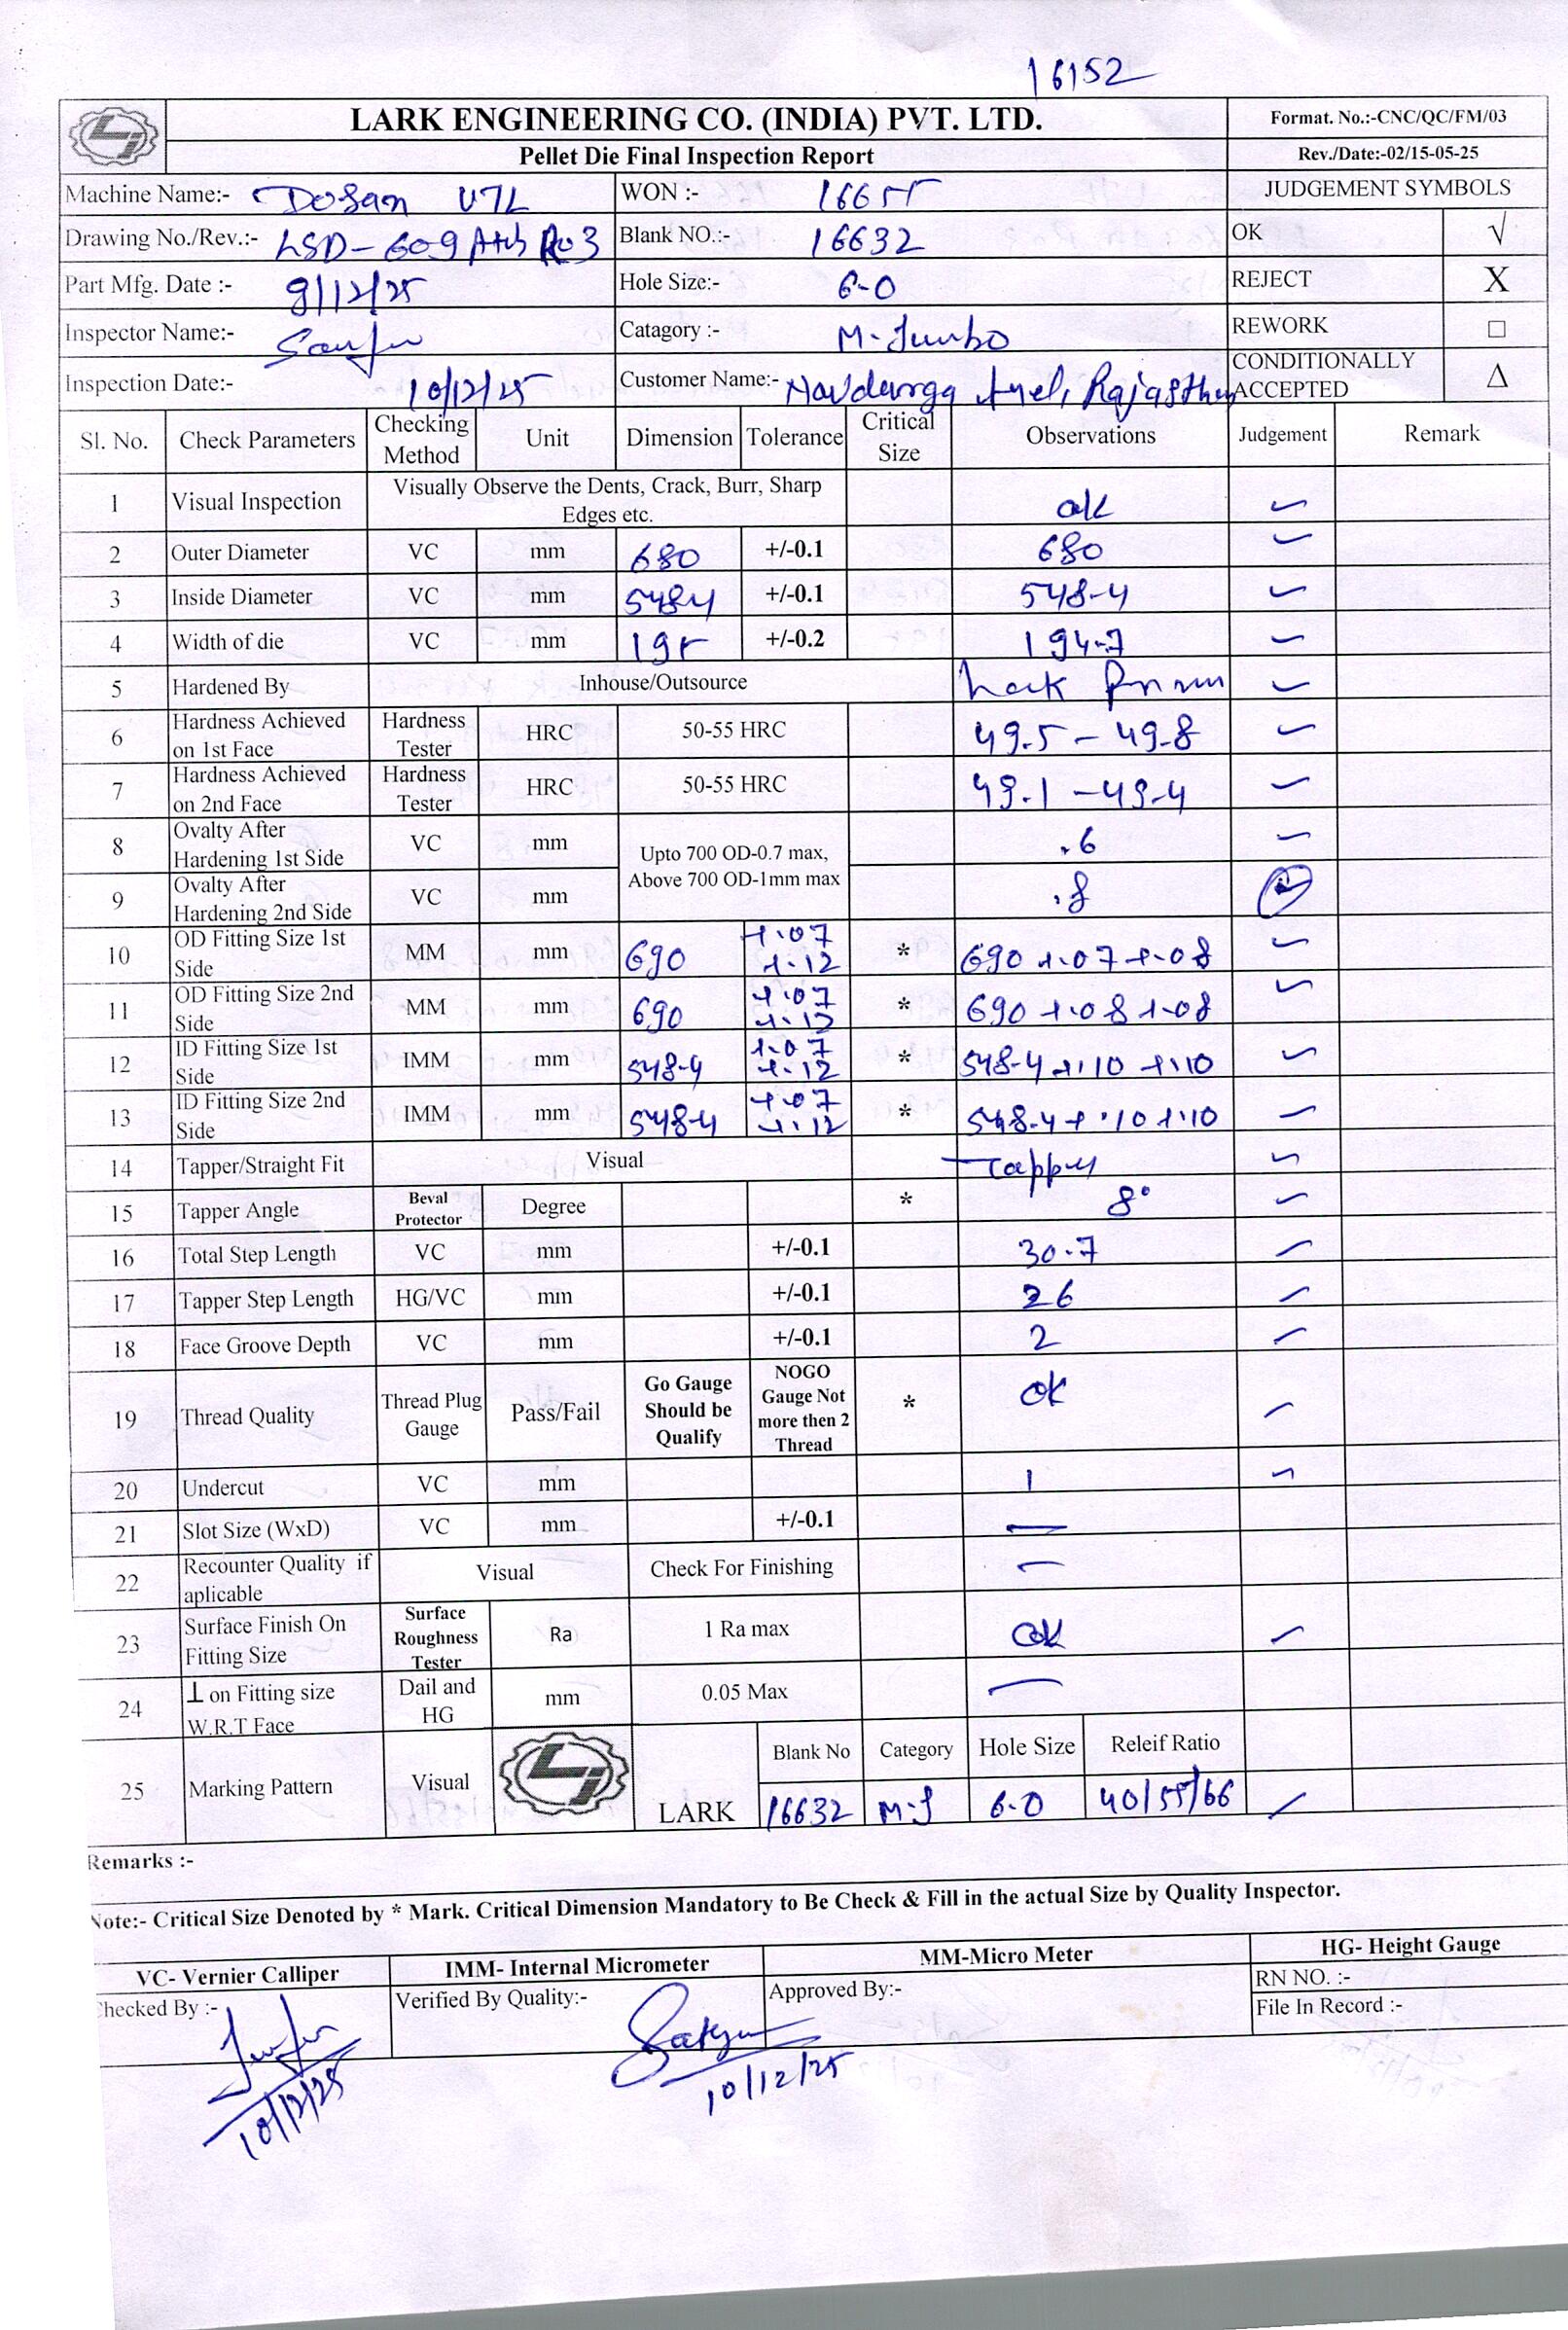 16152
LARK ENGINEERING CO. (INDIA) PVT. LTD.
Format. No.:-CNC/QC/FM/03
Pellet Die Final Inspection Report
Rev./Date:-02/15-05-25
Machine Name:- Dosan VTL WON :- 16655 JUDGEMENT SYMBOLS
Drawing No./Rev.:- LSD-609 R03 Blank NO.:- 16632 OK √
Part Mfg. Date :- 9/12/25 Hole Size:- 6-0 REJECT X
Inspector Name:- Catagory :- M-Jumbo REWORK □
Inspection Date:- 10/12/25 Customer Name:- Navdurga fuel, Rajasthan CONDITIONALLY ACCEPTED Δ
Sl. No. Check Parameters Checking Method Unit Dimension Tolerance Critical Size Observations Judgement Remark
1 Visual Inspection Visually Observe the Dents, Crack, Burr, Sharp Edges etc. ok ✓
2 Outer Diameter VC mm 680 +/-0.1 680 ✓
3 Inside Diameter VC mm 548-4 +/-0.1 548-4 ✓
4 Width of die VC mm 195 +/-0.2 194.7 ✓
5 Hardened By Inhouse/Outsource ✓
6 Hardness Achieved on 1st Face Hardness Tester HRC 50-55 HRC 49.5 - 49.8 ✓
7 Hardness Achieved on 2nd Face Hardness Tester HRC 50-55 HRC 49.1 - 49.4 ✓
8 Ovalty After Hardening 1st Side VC mm Upto 700 OD-0.7 max, Above 700 OD-1mm max .6 ✓
9 Ovalty After Hardening 2nd Side VC mm .8
10 OD Fitting Size 1st Side MM mm 690 +.07 +.12 * 690 +.07 +.08 ✓
11 OD Fitting Size 2nd Side MM mm 690 +.07 +.12 * 690 +.08 +.08 ✓
12 ID Fitting Size 1st Side IMM mm 548-4 +.07 +.12 * 548-4 +.10 +.10 ✓
13 ID Fitting Size 2nd Side IMM mm 548-4 +.07 +.12 * 548-4 +.10 +.10 ✓
14 Tapper/Straight Fit Visual Tapper ✓
15 Tapper Angle Beval Protector Degree * 8° ✓
16 Total Step Length VC mm +/-0.1 30.7 ✓
17 Tapper Step Length HG/VC mm +/-0.1 26 ✓
18 Face Groove Depth VC mm +/-0.1 2 ✓
19 Thread Quality Thread Plug Gauge Pass/Fail Go Gauge Should be Qualify NOGO Gauge Not more then 2 Thread * ok ✓
20 Undercut VC mm 1 ✓
21 Slot Size (WxD) VC mm +/-0.1 —
22 Recounter Quality if aplicable Visual Check For Finishing —
23 Surface Finish On Fitting Size Surface Roughness Tester Ra 1 Ra max ok ✓
24 ⊥ on Fitting size W.R.T Face Dail and HG mm 0.05 Max —
25 Marking Pattern Visual LARK Blank No Category Hole Size Releif Ratio
16632 M-J 6-0 40/55/66 ✓
Remarks :-
Note:- Critical Size Denoted by * Mark. Critical Dimension Mandatory to Be Check & Fill in the actual Size by Quality Inspector.
VC- Vernier Calliper IMM- Internal Micrometer MM-Micro Meter HG- Height Gauge
Checked By :- Verified By Quality:- Approved By:- RN NO. :-
File In Record :-
Satyam
10/12/25 10/12/25